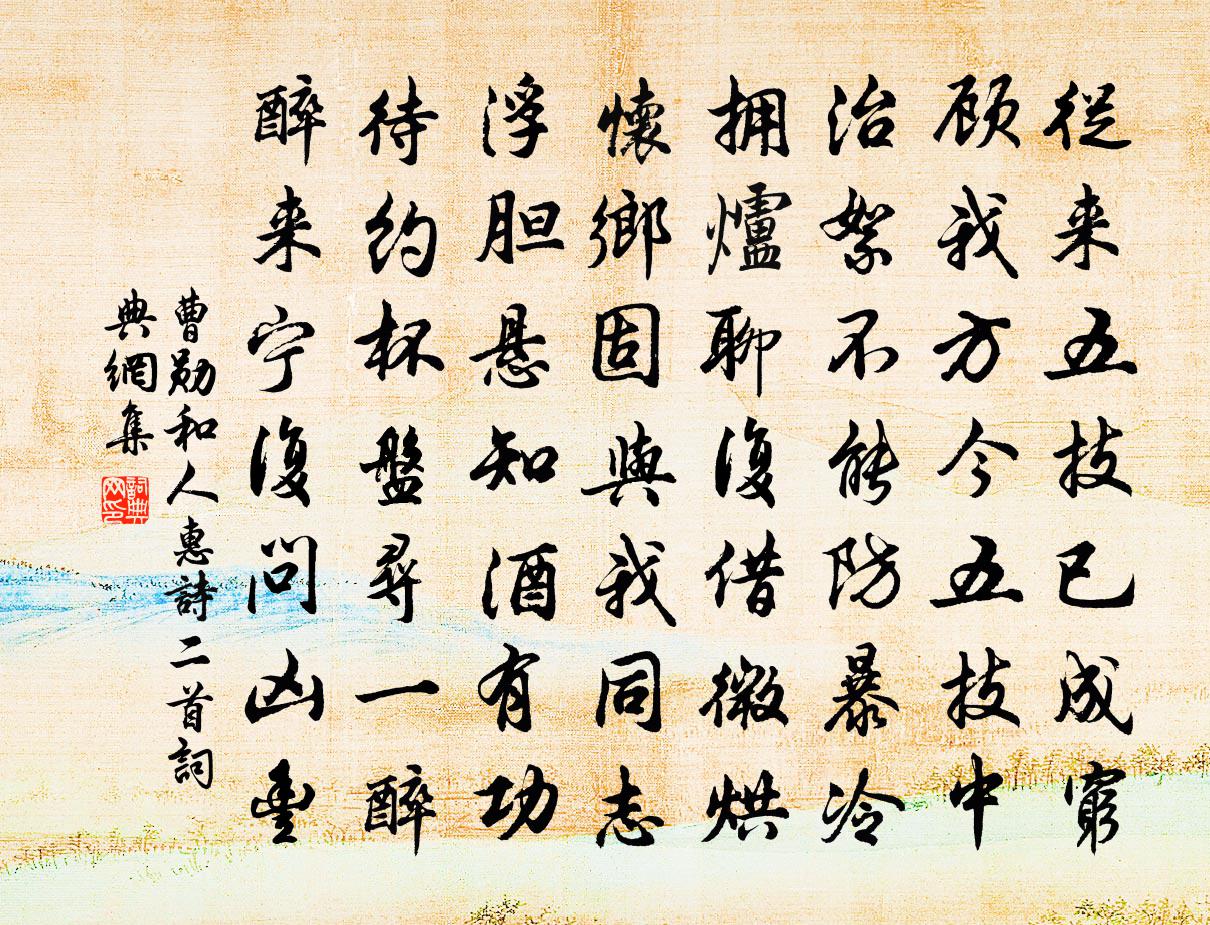 從来五技已成窮
顾我方今五技中
治絮不能防暴冷
拥爐聊復借微烘
懷鄉固與我同志
浮胆悬知酒有功
待約杯盤尋一醉
醉来宁復问凶豊
曹勋和人惠詩二首詞
典網集
詞典网印